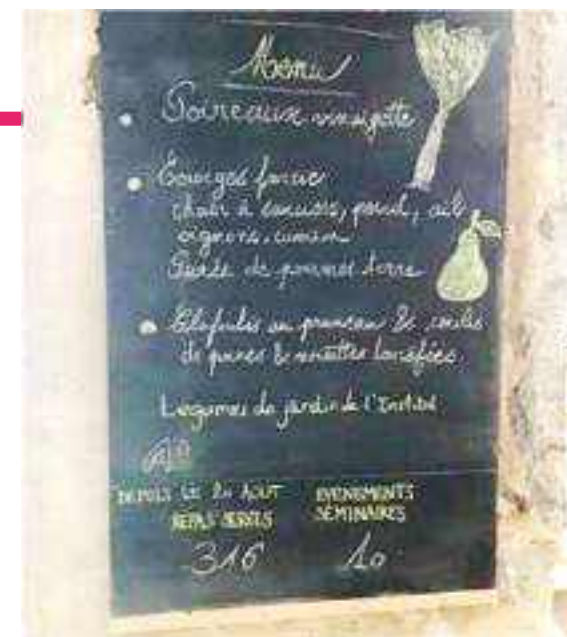 Menu
Poireaux vinaigrette
farcie
chair à saucisse, persil, ail
oignons, cumin
Purée de pommes terre
au pruneau & coulis
de poires & noisettes torréfiées
Légumes du jardin de l'Institut
DEPUIS LE 20 AOUT
REPAS SERVIS
316
EVENEMENTS
SÉMINAIRES
10